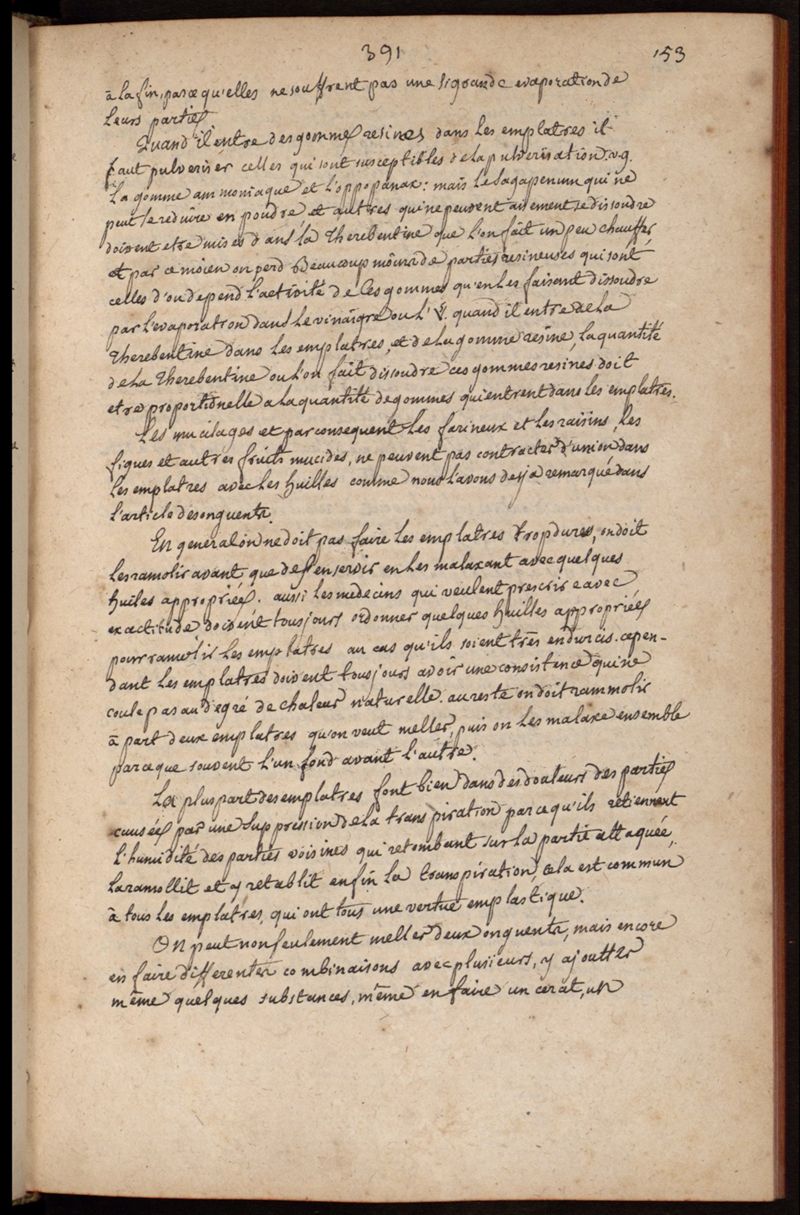 391
153
à la fin, parce qu'elles ne souffrent pas une si grande evaporation de
leurs parties
Quand il entre des gommes resines dans les emplatres il
faut pulveriser celles qui sont susceptibles de la pulverisation. v.g.
la gomme ammoniaque et l'oppopanax: mais le sagapenum qui ne
peut se reduire en poudre et autres qui ne peuvent aisement se dissoudre
doivent etre mises dans la therebentine que l'on fait un peu chauffer
et par ce moien on perd beaucoup moins de parties resineuses qui sont
celles d'ou depend l'activité de ces gommes qu'en les faisant dissoudre
par l'evaporation dans le vinaigre ou l' quand il entre de la
therebentine dans les emplatres, et de la gomme resine, la quantité
de la therebentine ou l'on fait dissoudre ces gommes resines doit
etre proportionelle a la quantité de gommes qui entrent dans les emplatres.
Les mucilages et par consequent les farineux et les raisins, les
figues et autres fruits mucides, ne peuvent pas contracter d'union dans
les emplatres avec les huilles comme nous l'avons deja remarqué dans
l'article des onguents.
En general on ne doit pas faire les emplatres trop dures, on doit
les ramolir avant que de s'en servir en les malaxant avec quelques
huiles appropriées. aussi les medecins qui veulent prescrire avec
exactitude doivent tousjours ordonner quelques huilles appropriées
pour ramolir les emplatres au cas qu'ils soient très endurcis. cepen-
dant les emplatres doivent tousjours avoir une consistence qui ne
coule pas au degré de chaleur naturelle. au reste on doit rammolir
à part deux emplatres qu'on veut meller, puis on les malaxe ensemble
parce que souvent l'un fond avant l'autre.
La pluspart des emplatres font bien dans des douleurs des parties
causées par une suppression de la transpiration parce qu'ils retiennent
l'humidité des parties voisines qui retombant sur la partie attaquée,
la ramollit et y retablit enfin la transpiration, cela est commun
à tous les emplatres, qui ont tous une vertue emplastique.
On peut non seulement meller deux onguents, mais encore
en faire differentes combinaisons avec plusieurs, y ajoutter
même quelques substances, même en faire un cerat, un